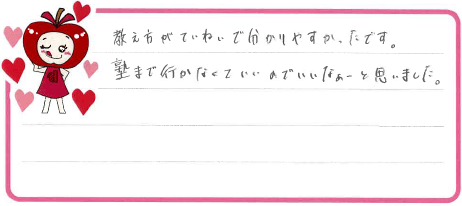 教え方がていねいで分かりやすかったです。
塾まで行かなくていいのでいいなぁーと思いました。